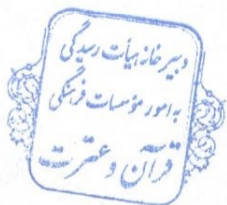 دبیرخانه هیأت رسیدگی
به امور مؤسسات فرهنگی
قرآن و عترت